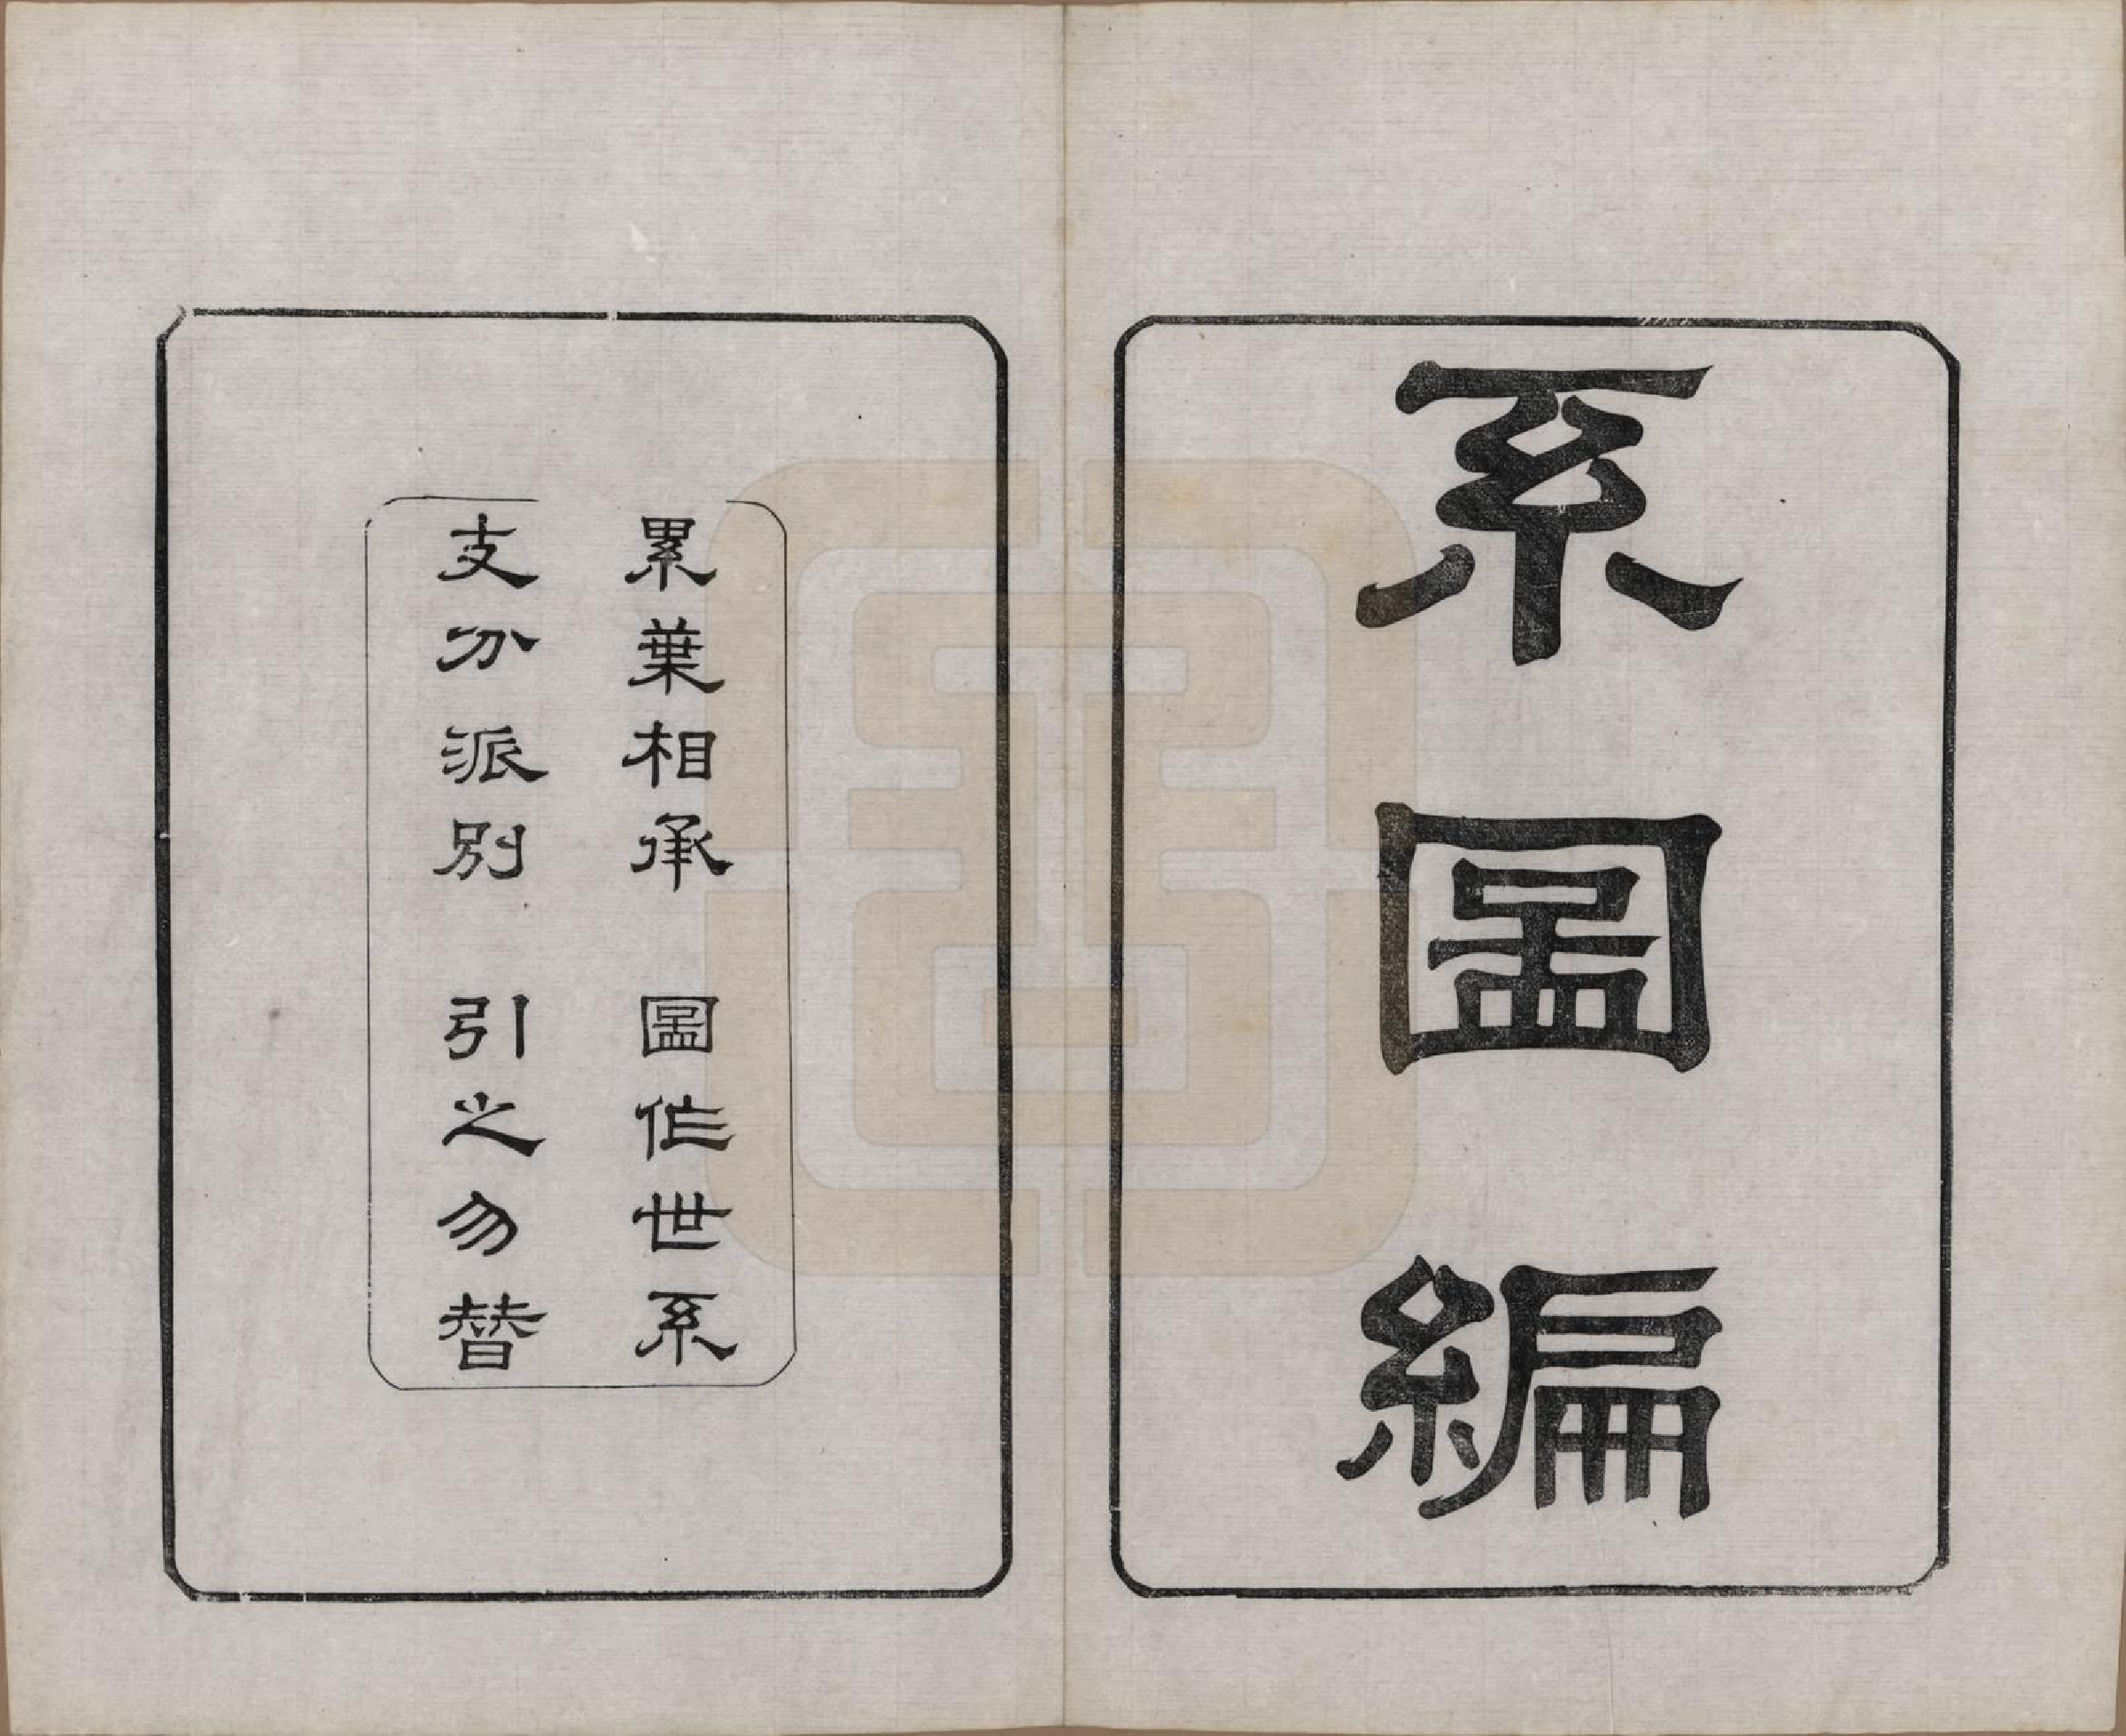 系圖編
累葉相承　圖作世系
支分派別　引之勿替